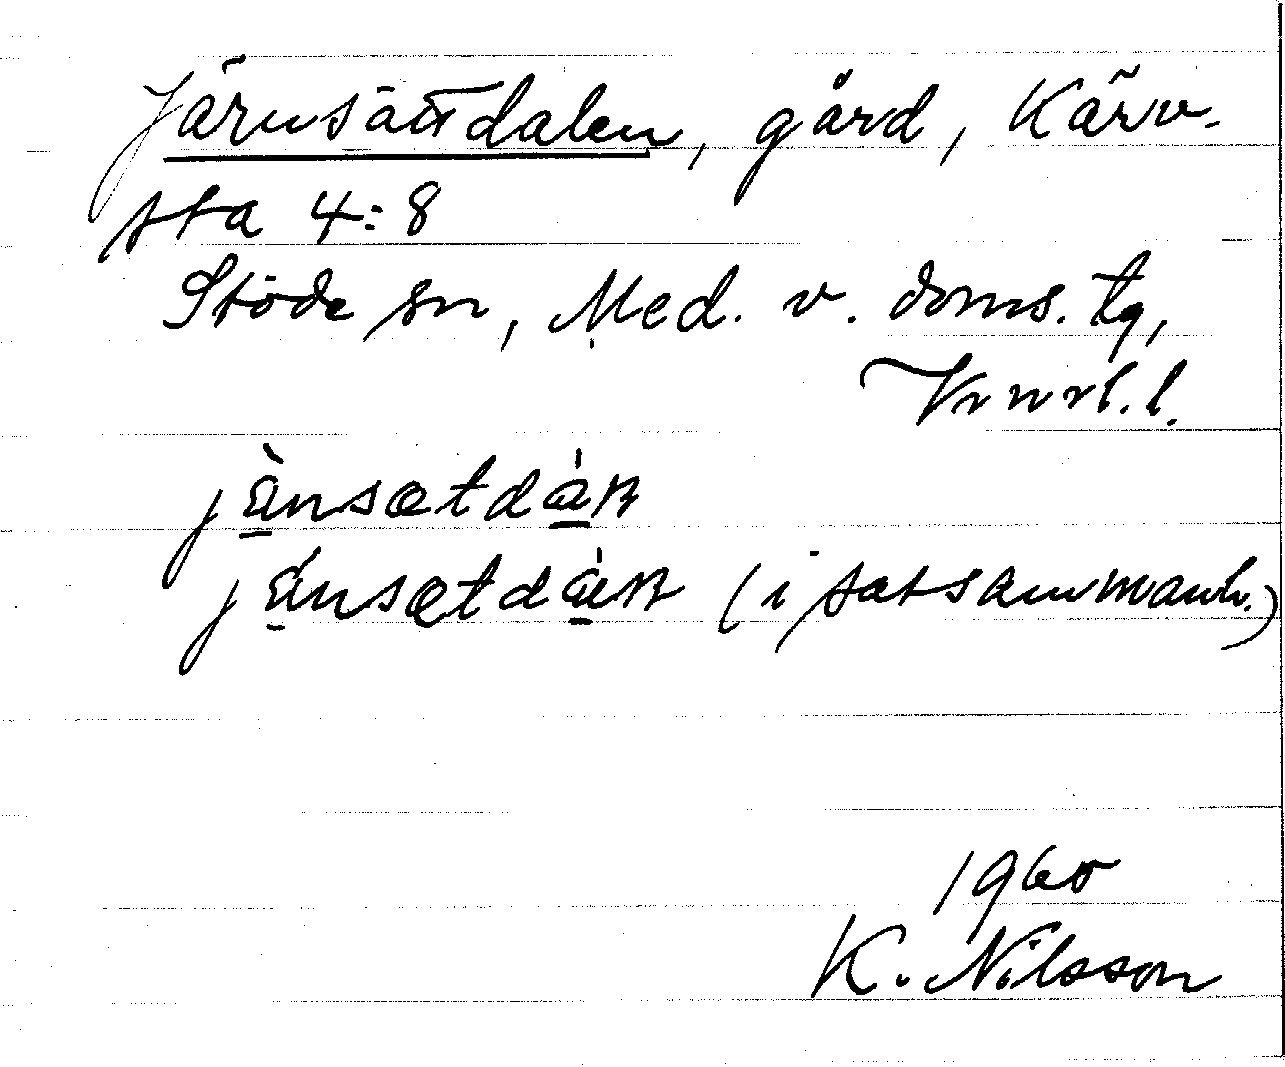 Järnsättdalen, gård, Kärv-
sta 4:8
Stöde sn, Med. v. doms. tg,
Vnrl. l.
jæ̀nsætdàɴ
jǽnsætdàɴ (i satssammanh.)
1960
K. Nilsson